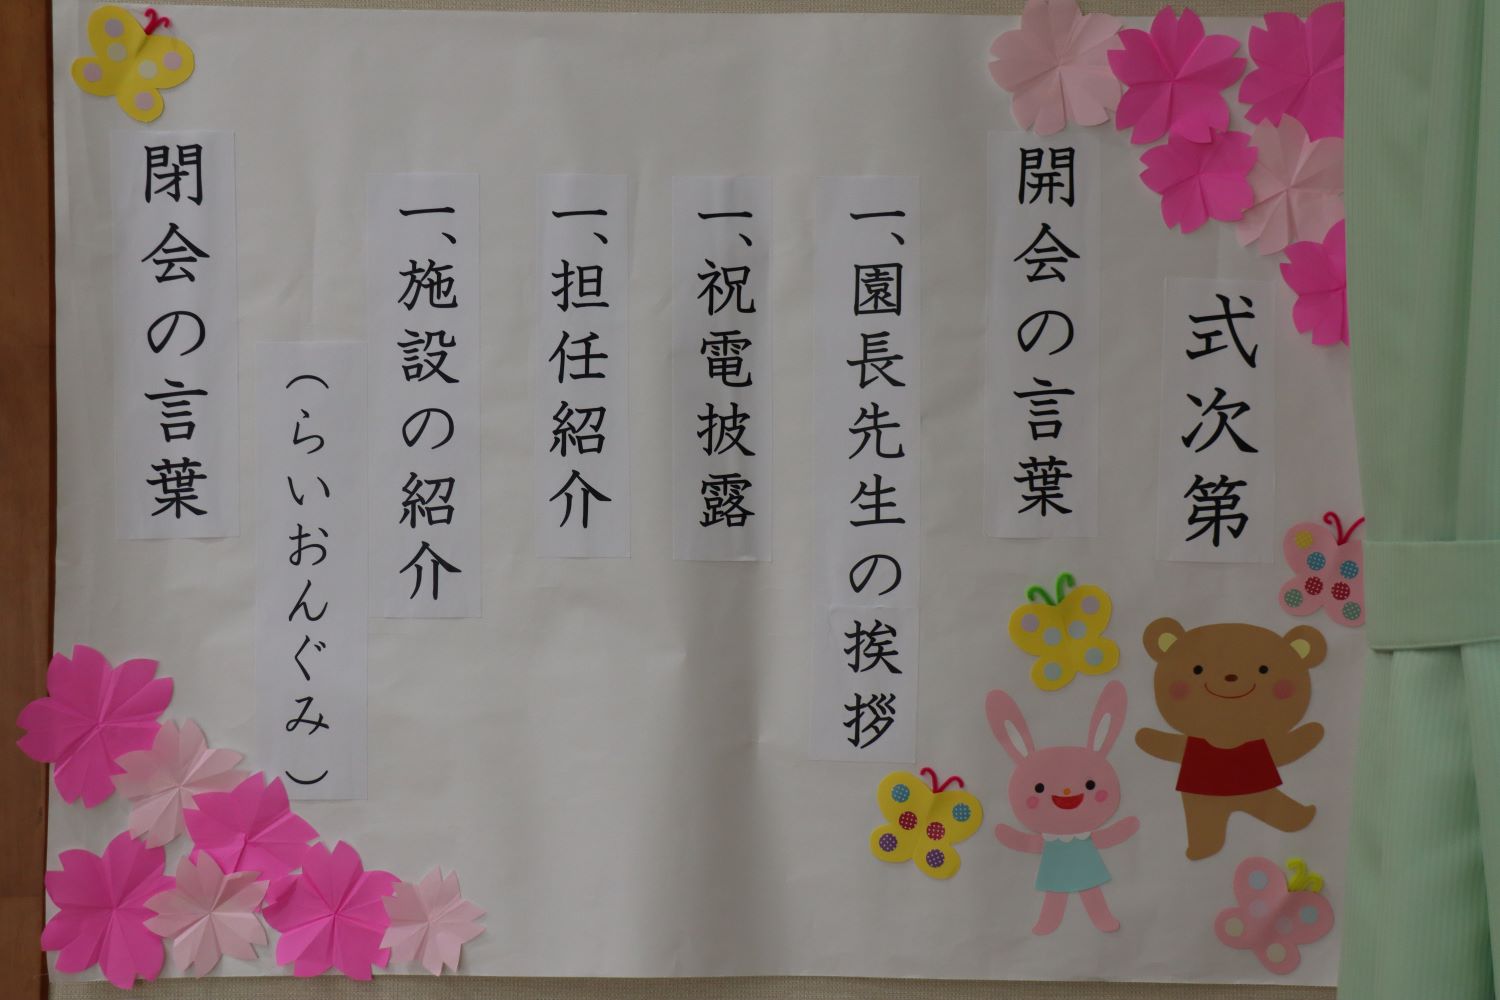 式次第
開会の言葉
一、園長先生の挨拶
一、祝電披露
一、担任紹介
一、施設の紹介
（らいおんぐみ）
閉会の言葉